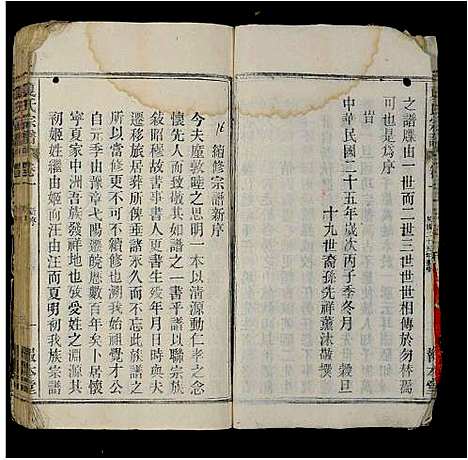 之譜牒由一世而二世三世世世相傳於勿替焉
可也是為序
旹
中華民國二十五年歲次丙子季冬月 穀旦
十九世裔孫先祥薰沐敬撰
續修宗譜新序
今夫慶敦睦之思明一本以清源動仁孝之念
懷先人而致敬其如譜之一書乎譜以聯宗族
敘昭穆世次人更書生殁年月日時與夫
遷移葬所俾世世子孫不忘所自此族譜之
大所當修更不可不續修也溯我始祖覺才公
自元季由豫章弋陽遷皖歷數百年矣卜居懷
寧夏家中洲吾族發祥地也攷受姓之淵源其
初姬姓繼由姬而汪由汪而夏明初我族宗譜
夏氏宗譜
卷一
新序
報本堂